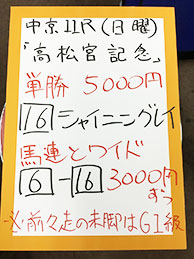 中京11R(日曜)
「高松宮記念」
単勝 5000円
16 シャイニングレイ
馬連とワイド
6-16 3000円
ずつ
※前々走の末脚はG1級